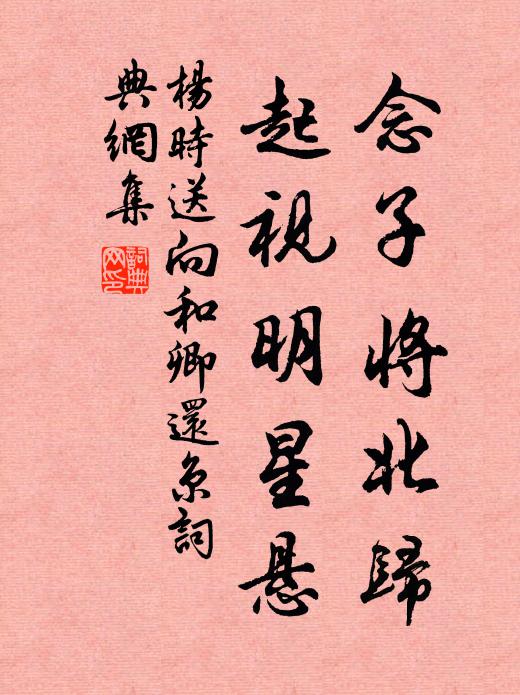 念子將北歸
起視明星懸
楊時送向和卿還京詞
典網集
詞典
网印